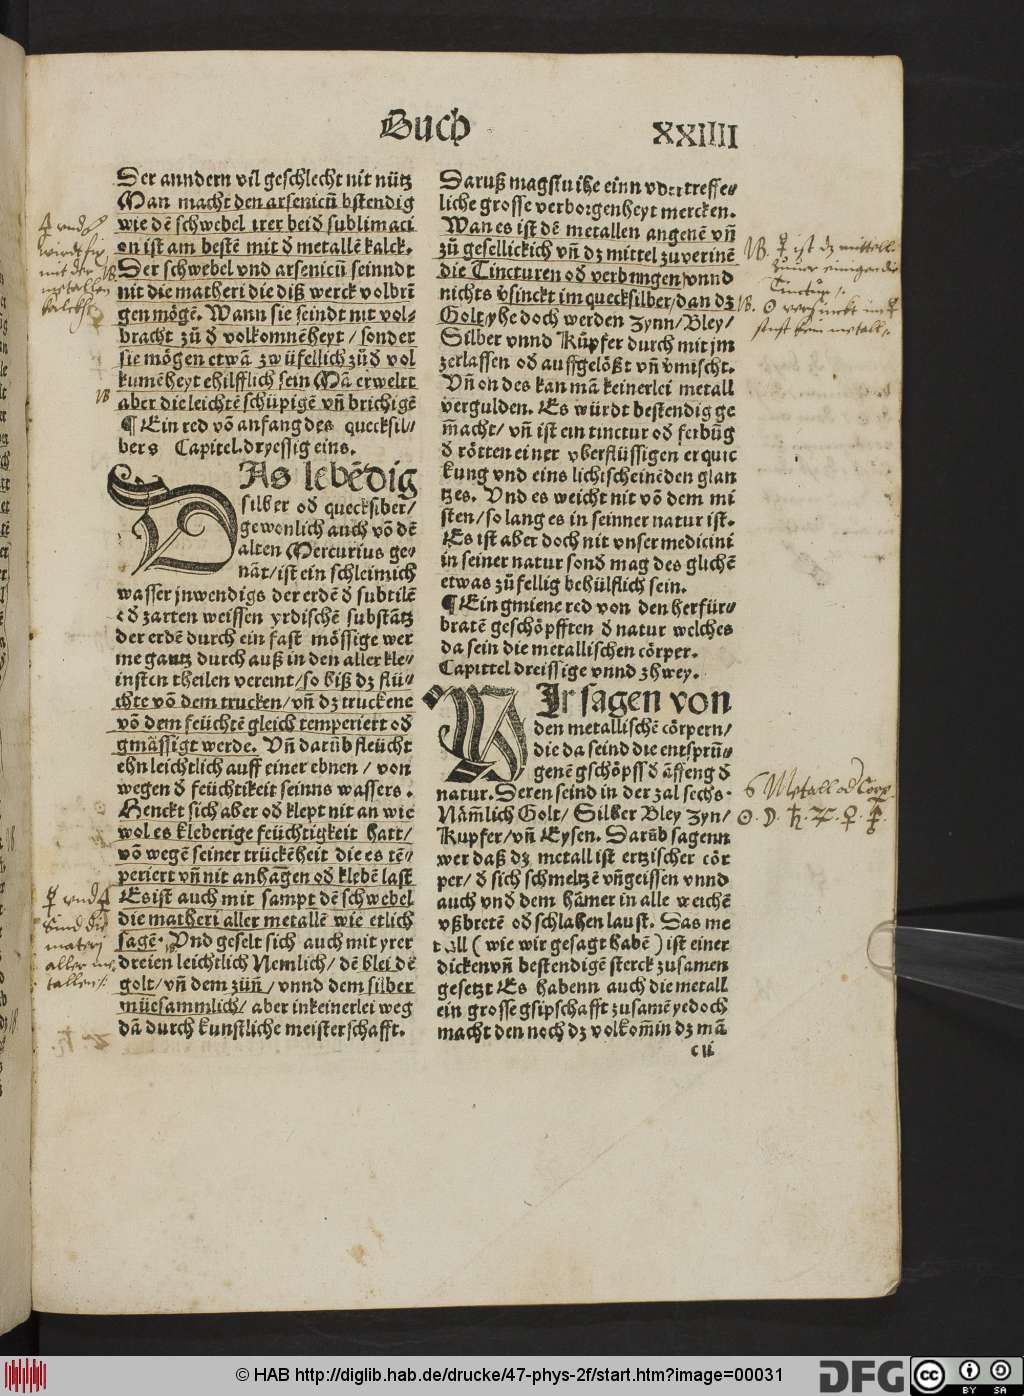 Buch
XXIIII
Der anndern vil geschlecht nit nütz
Man macht den arsenicū bstendig
wie dē schwebel irer beid sublimaci
on ist am bestē mit d metallē kalck.
Der schwebel vnd arsenicū seinndt
nit die matheri die diß werck volbrī
gen mögē. Wann sie seindt nit vol⸗
bracht zů d volkomnēheyt / sonder
sie mögen etwā zwüfellich zůd vol
kumēheyt ehilfflich sein Mā erwelt
aber die leichtē schüpigē vñ brichigē
¶ Ein red vō anfang des quecksil⸗
bers Capitel. dryessig eins.
DAs lebēdig
silber od quecksiber/
gewonlich auch vō dē
alten Mercurius ge⸗
nāt/ist ein schleimich
wasser jnwendigs der erdē d subtilē
ed zarten weissen yrdischē substātz
der erdē durch ein fast mössige wer
me gantz durch auß in den aller kle⸗
insten theilen vereint/so biß dz flü⸗
chte vō dem trucken/vñ dz truckene
vō dem feüchtē gleich temperiert od
gmässigt werde. Vñ darūb fleücht
ehn leichtlich auff einer ebnen / von
wegen d feüchtikeit seinns wassers.
Henckt sich aber od klept nit an wie
wol es kleberige feüchtigkeit hatt/
vō wegē seiner trückēheit die es tē⸗
periert vñ nit anhāgen od klebē last
Es ist auch mit sampt dē schwebel
die matheri aller metallē wie etlich
sagē. Vnd geselt sich auch mit yrer
dreien leichtlich Nemlich/ dē blei dē
golt/ vñ dem züñ/ vnnd dem silber
müesammlich/ aber in keinerlei weg
dā durch kunstliche meisterschafft.
Daruß magstu ihe einn vbertreffe⸗
liche grosse verborgenheyt mercken.
Wan es ist dē metallen angenē vñ
zů gesellickich vñ dz mittel zuverinē
die Tincturen od verbungen/vnnd
nichts v̈sinckt im quecksilber/dan dz
Golt/yhe doch werden Zynn/Bley/
Silber vnnd Kůpfer durch mit jm
zerlassen od auffgelößt vñ v̈mischt.
Vñ on des kan mā keinerlei metall
vergulden. Es würdt bestendig ge
m̄acht/ vñ ist ein tinctur od ferbūg
d rötten einer vberflüssigen erquic
kung vnd eins lichtscheinēden glan
tzes. Vnd es weicht nit vō dem mi
sten/so lang es in seinner natur ist.
Es ist aber doch nit vnser medicini
in seiner natur sond mag des glichē
etwas zůfellig behülflich sein.
¶ Ein gmiene red von den herfür⸗
bratē geschöpfften d natur welches
da sein die metallischen cörper.
Capittel dreissige vnnd zhwey.
WIr sagen von
den metallischē cörpern/
die da seind die entsprū⸗
genē gschöpss d āffeng d
natur. Deren seind in der zal sechs.
Nām̄lich Golt/ Silber Bley Zyn/
Kupfer/ vñ Eysen. Darūb sagenn
wer daß dz metall ist ertzischer cör
per/ d sich schmeltzē vñgeissen vnnd
auch vnd dem hāmer in alle weichē
vßbretē od schlahen laust. Das me
tall ( wie wir gesagt habē ) ist einer
dickenvñ bestendigē sterck zusamen
gesetzt Es habenn auch die metall
ein grosse gsipschafft zusamē yedoch
macht den noch dz volkom̄in dz mā
c ii
wirdt fix
mit der
metallen
kalckh
NB
♀ vnd
sind die
materj
aller me
tallen
NB. ☿ ist dz mittel
Tinctur
NB. ☉ versinckt im ☿
sunst kein metall
6 Metall od Corp
☉. ☽. ♄. ♃. ♀. ♂.
© HAB http://diglib.hab.de/drucke/47-phys-2f/start.htm?image=00031
DFG
cc
BY SA